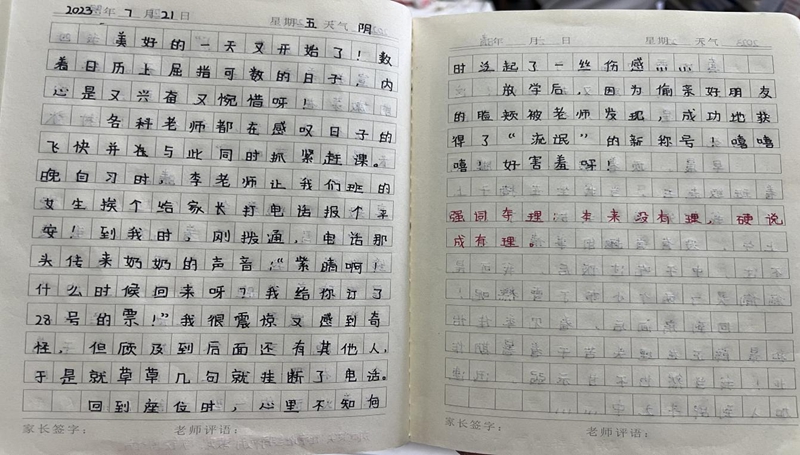 2023年 7 月 21 日 星期 五 天气 阴
美好的一天又开始了！数
着日历上屈指可数的日子，内
心是又兴奋又惋惜呀！
各科老师都在感叹日子的
飞快并在与此同时抓紧赶课。
晚自习时，李老师让我们班的
女生挨个给家长打电话报个平
安！到我时，刚拨通，电话那
头传来奶奶的声音："紫晴啊！
什么时候回来呀？我给你订了
28号的票！"我很震惊又感到奇
怪，但顾及到后面还有其他人，
于是就草草几句就挂断了电话。
回到座位时，心里不知何
家长签字： 老师评语：
年 月 日 星期 天气
时泛起了一丝伤感……
放学后，因为偷亲好朋友
的脸颊被老师发现，成功地获
得了"流氓"的新称号！嘻嘻
嘻！好害羞呀！
强词夺理：本来没有理，硬说
成有理。
家长签字： 老师评语：